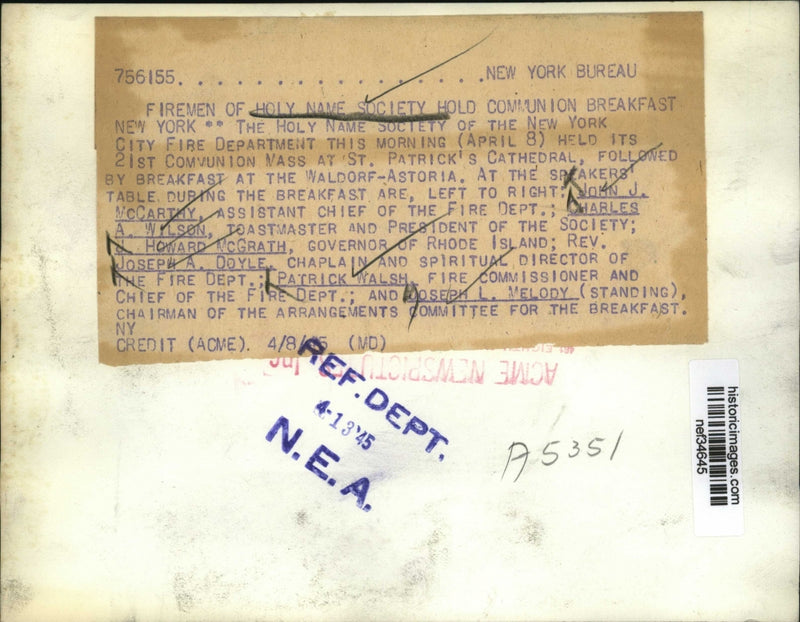 756155. . . . . . . . . . . . . . . . . .NEW YORK BUREAU
FIREMEN OF HOLY NAME SOCIETY HOLD COMMUNION BREAKFAST
NEW YORK ** THE HOLY NAME SOCIETY OF THE NEW YORK
CITY FIRE DEPARTMENT THIS MORNING (APRIL 8) HELD ITS
21ST COMMUNION MASS AT ST. PATRICK'S CATHEDRAL, FOLLOWED
BY BREAKFAST AT THE WALDORF-ASTORIA. AT THE SPEAKERS'
TABLE DURING THE BREAKFAST ARE, LEFT TO RIGHT: JOHN J.
MCCARTHY, ASSISTANT CHIEF OF THE FIRE DEPT.; CHARLES
A. WILSON, TOASTMASTER AND PRESIDENT OF THE SOCIETY;
J. HOWARD MCGRATH, GOVERNOR OF RHODE ISLAND; REV.
JOSEPH A. DOYLE, CHAPLAIN AND SPIRITUAL DIRECTOR OF
THE FIRE DEPT.; PATRICK WALSH, FIRE COMMISSIONER AND
CHIEF OF THE FIRE DEPT.; AND JOSEPH L. MELODY (STANDING),
CHAIRMAN OF THE ARRANGEMENTS COMMITTEE FOR THE BREAKFAST.
NY
CREDIT (ACME). 4/8/45 (MD)
ACME NEWSPICTURES Inc
REF. DEPT.
4-13'45
N.E.A.
A5351
historicimages.com
nef34645